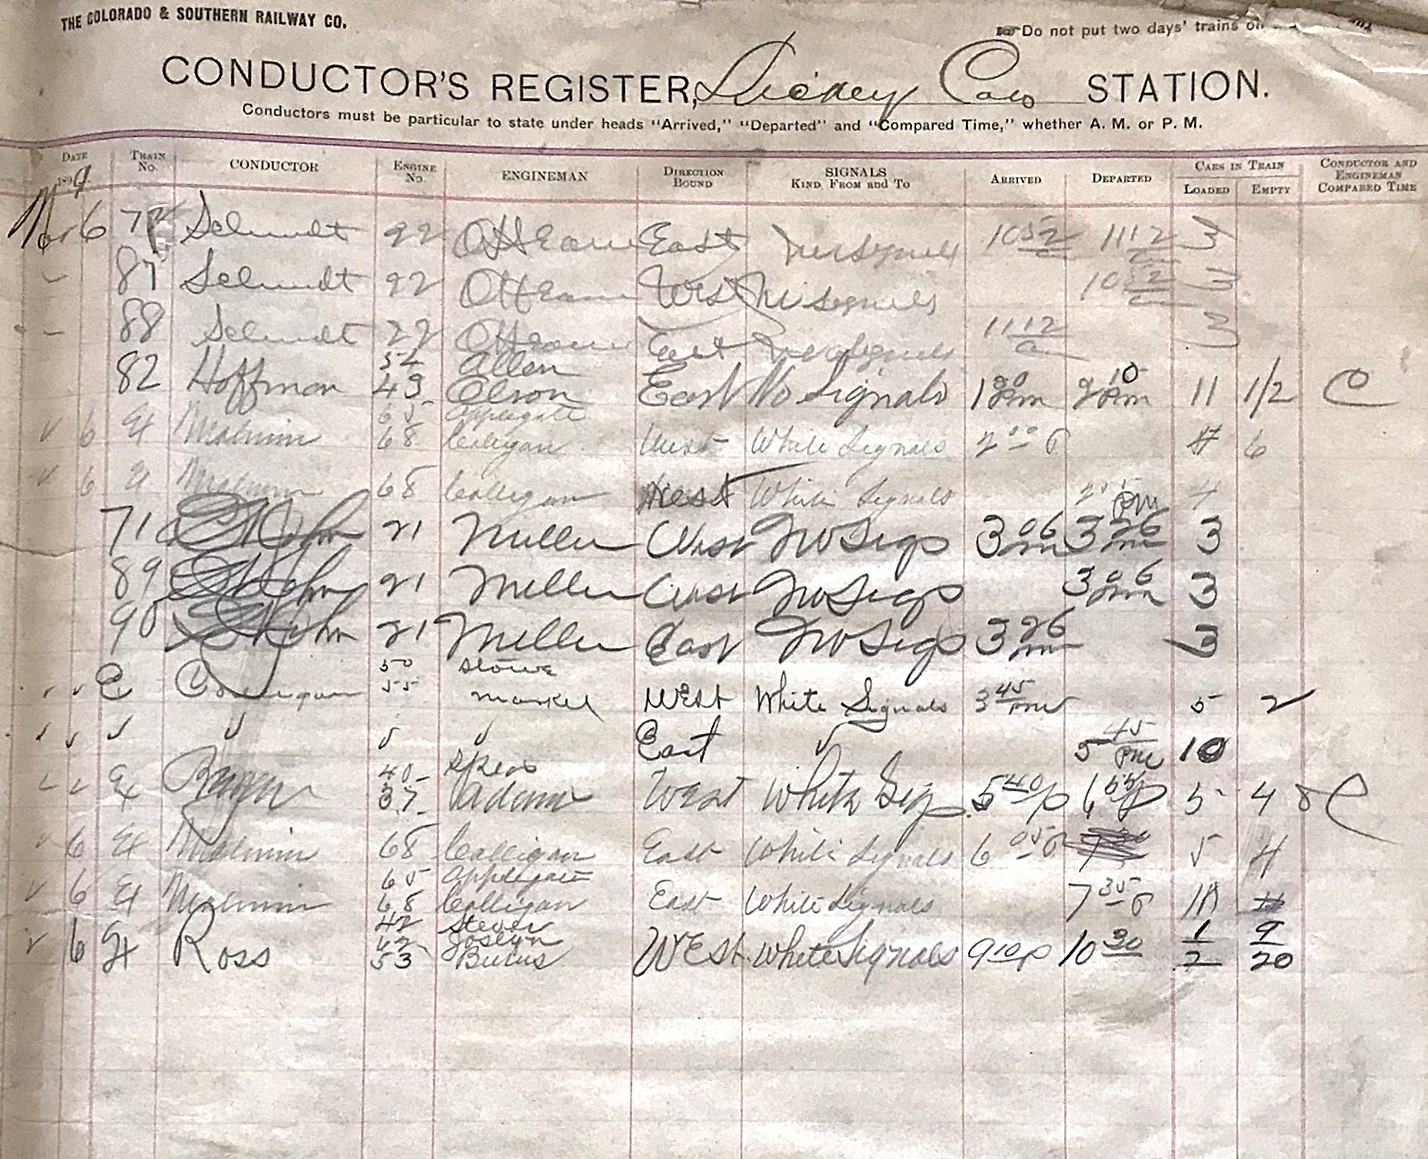 THE COLORADO & SOUTHERN RAILWAY CO.
Do not put two days' trains on
CONDUCTOR'S REGISTER, Dickey Colo STATION.
Conductors must be particular to state under heads "Arrived," "Departed" and "Compared Time," whether A. M. or P. M.
DATE 189 9 TRAIN No. CONDUCTOR ENGINE No. ENGINEMAN DIRECTION BOUND SIGNALS KIND, FROM and TO ARRIVED DEPARTED CARS IN TRAIN LOADED EMPTY CONDUCTOR AND ENGINEMAN COMPARED TIME
Nov 6 72 Schmidt 22 East No signals 10 52 a 11 12 a 3
87 Schmidt 22 West No signals 10 52 a 3
88 Schmidt 22 East No signals 11 12 a 3
54 Allen
82 Hoffman 43 Olson East No Signals 1 20 Pm 2 10 Pm 11 1/2 C
65 Applegate
v 6 Ex 68 Colligan West White Signals 2 00 P # 6
v 6 Ex 68 Colligan West White Signals Pm 4
71 21 Miller West No Sigs 3 06 Pm 3 26 Pm 3
89 21 Miller West No Sigs 3 06 Pm 3
90 21 Miller East No Sigs 3 26 Pm 3
50 Stowe
v v E 55 Markel West White Signals 3 45 Pm 5 2
v v v v v v East v 5 45 Pm 10
40 Spear
Ex 37 Adams West White Sig 5 40 P 6 55 P 5 4 C
v 6 Ex 68 Colligan East White Signals 6 05 P 5 4
65 Applegate
v 6 Ex 68 Colligan East White Signals 7 35 P 10
42 Stever
42 Joslyn 1 9
v 6 Ex Ross 53 Burns West White Signals 9 10 P 10 30 2 20